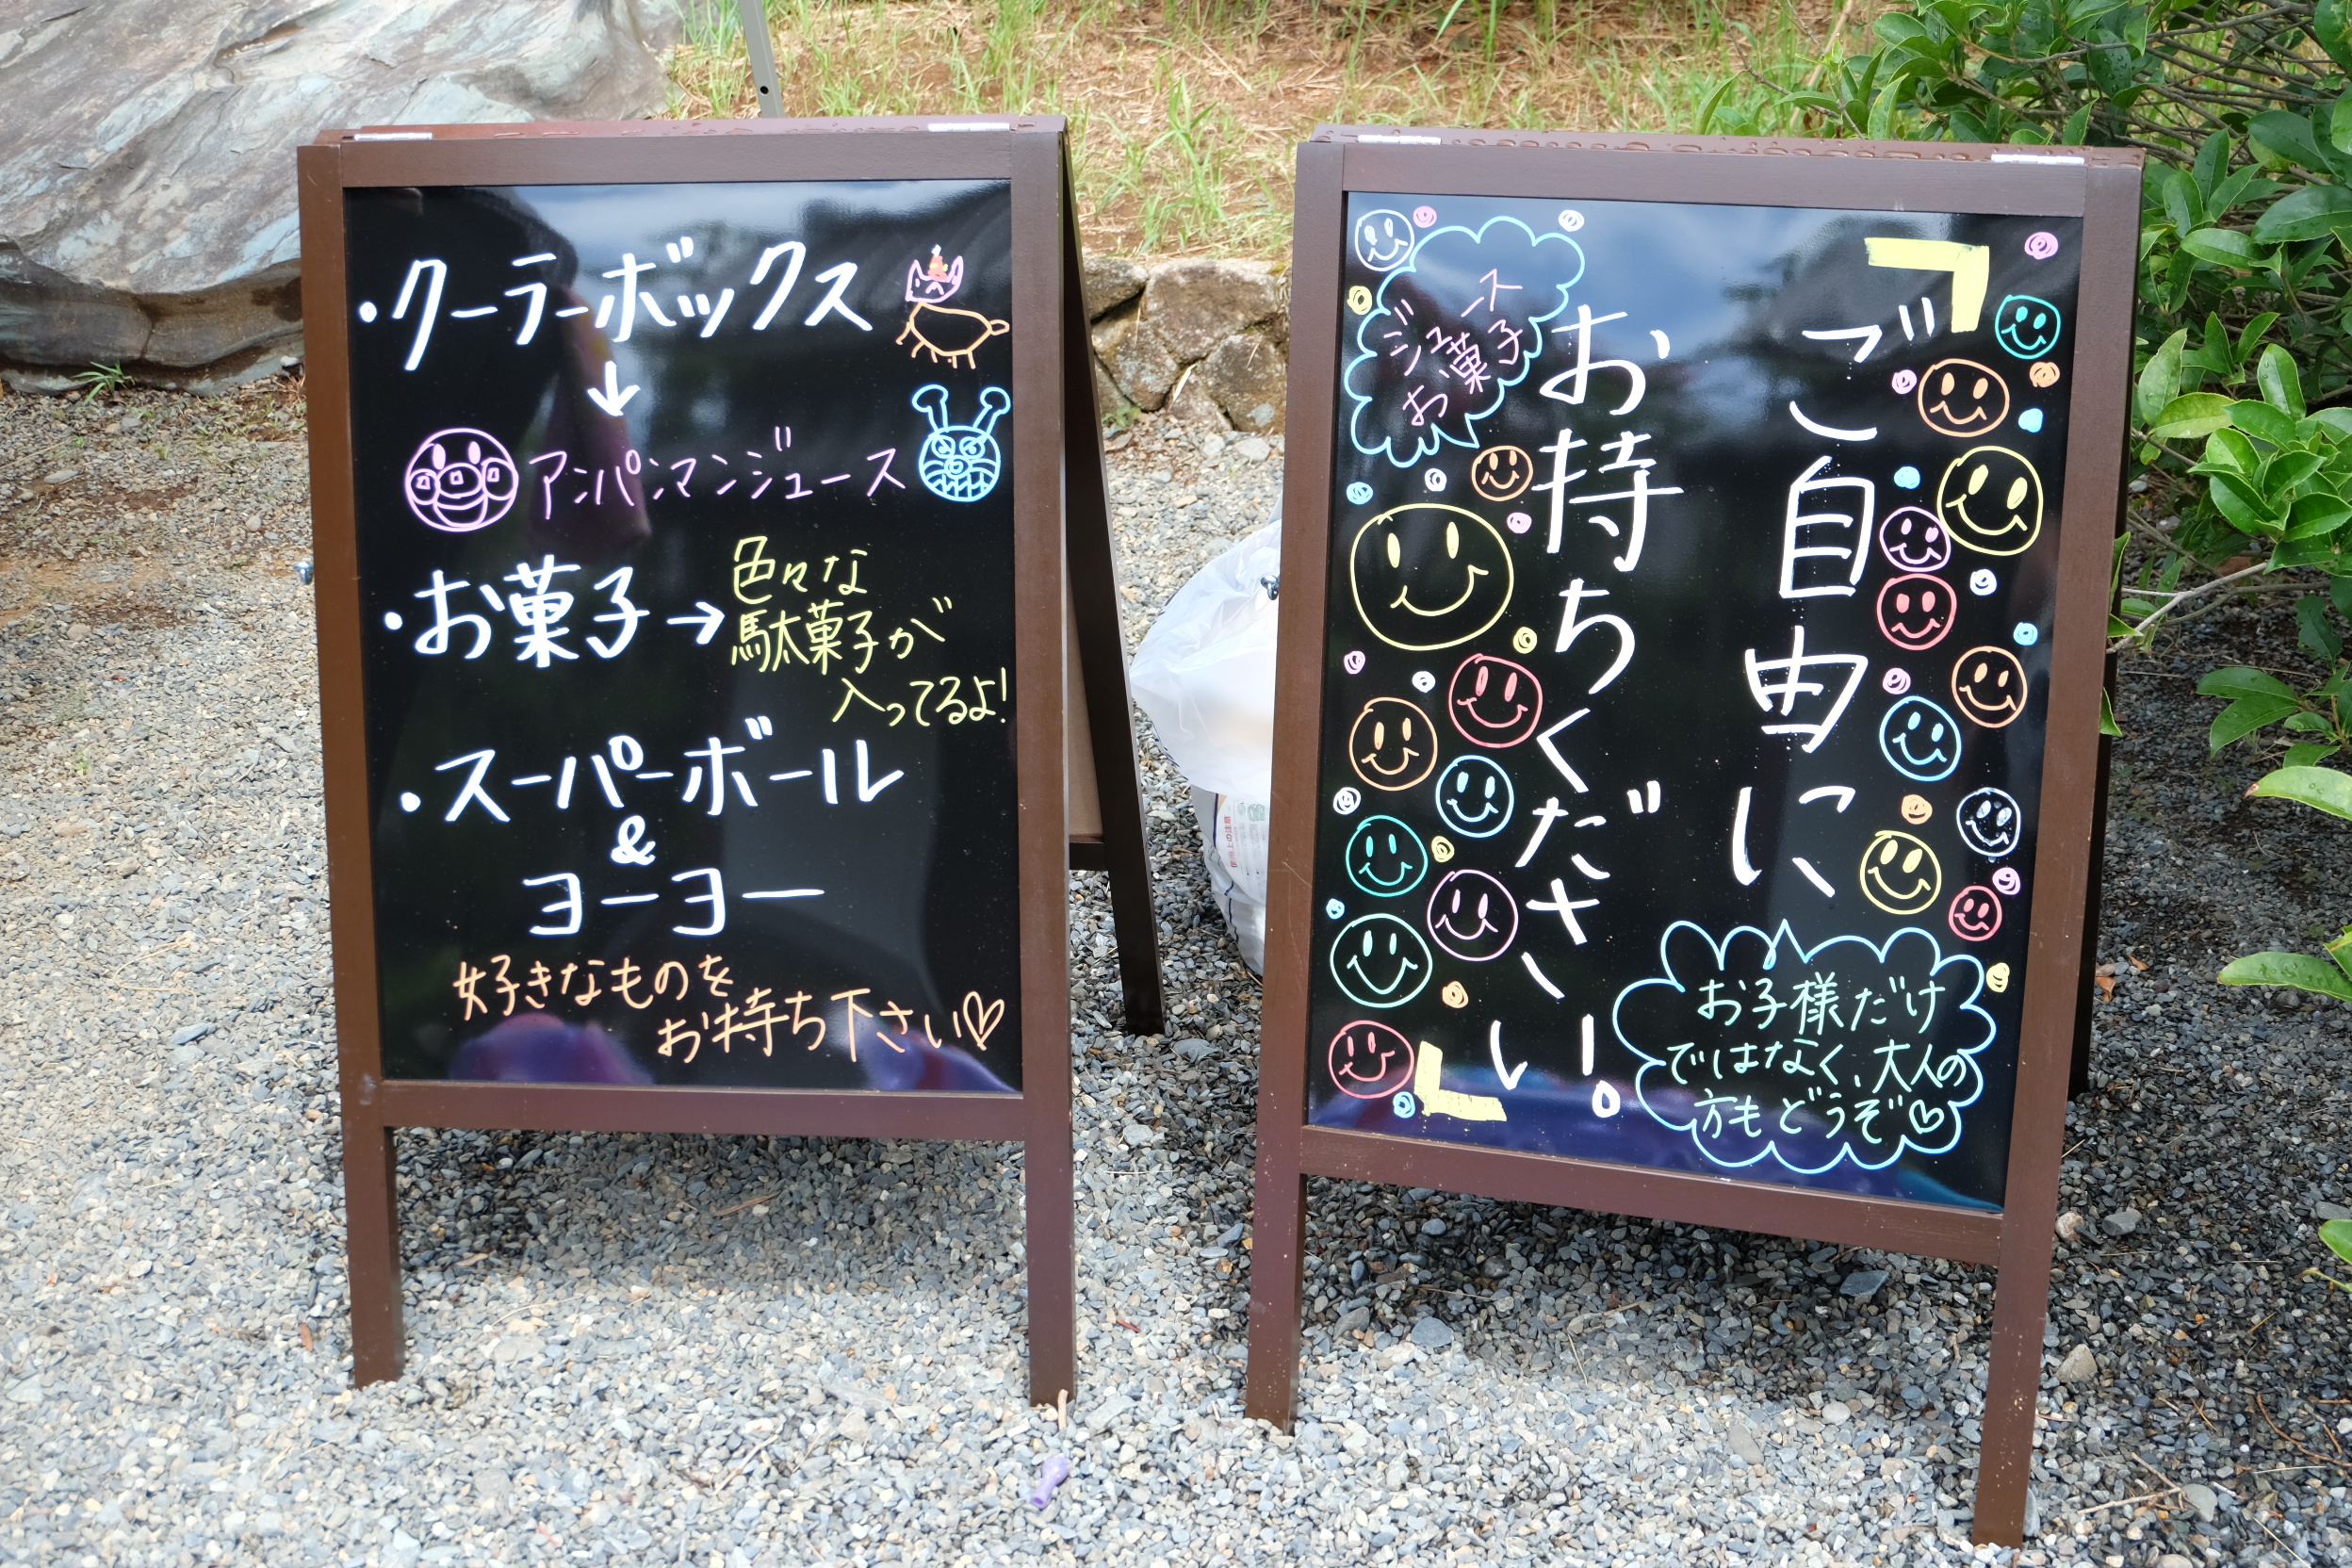 ・クーラーボックス
↓
アンパンマンジュース
・お菓子→
色々な
駄菓子が
入ってるよ!
・スーパーボール
&
ヨーヨー
好きなものを
お持ち下さい♡
ジュース
お菓子
「ご自由に
お持ちください!。」
お子様だけ
ではなく、大人の
方もどうぞ♡